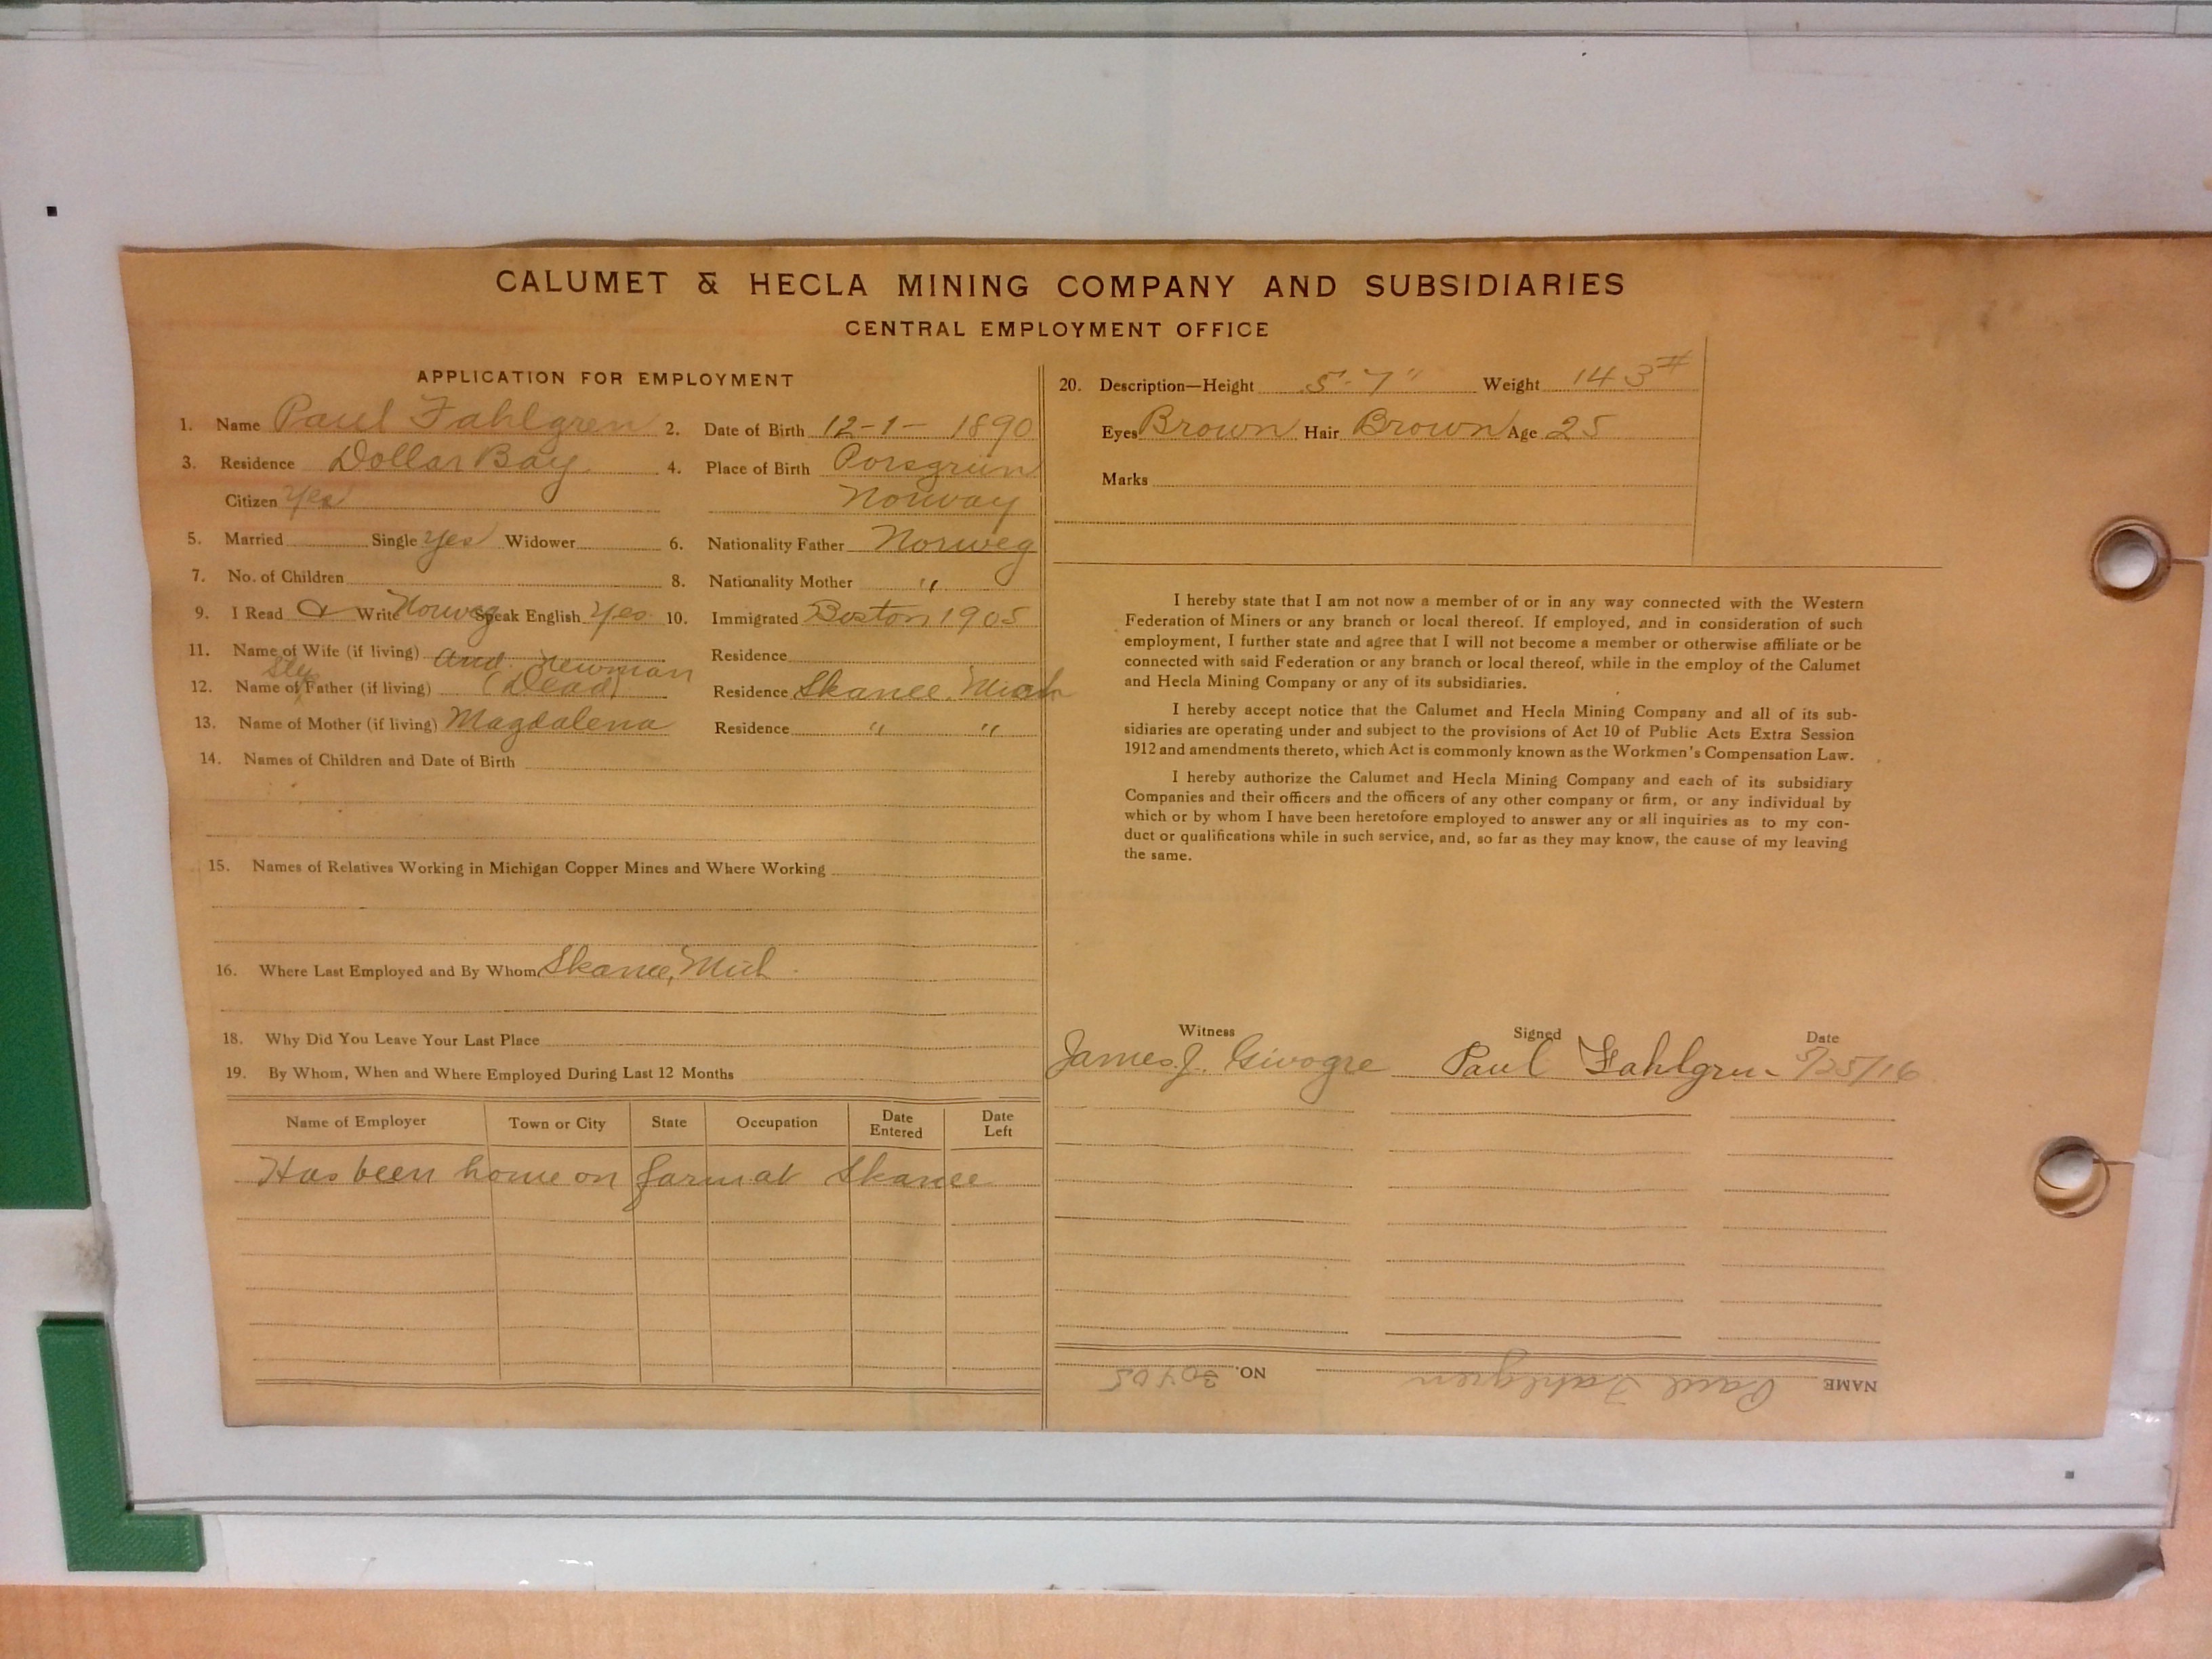 CALUMET & HECLA MINING COMPANY AND SUBSIDIARIES
CENTRAL EMPLOYMENT OFFICE
APPLICATION FOR EMPLOYMENT
1. Name Paul Fahlgren 2. Date of Birth 12-1- 1890
3. Residence Dollar Bay. 4. Place of Birth Porsgrun
Citizen Yes Norway
5. Married Single Yes Widower 6. Nationality Father Norweg
7. No. of Children 8. Nationality Mother "
9. I Read & Write Norweg Speak English Yes 10. Immigrated Boston 1905
11. Name of Wife (if living) Residence
And. Newman
Step
12. Name of Father (if living) (Dead) Residence Skanee. Mich
13. Name of Mother (if living) Magdalena Residence " "
14. Names of Children and Date of Birth
15. Names of Relatives Working in Michigan Copper Mines and Where Working
16. Where Last Employed and By Whom Skanee, Mich
18. Why Did You Leave Your Last Place
19. By Whom, When and Where Employed During Last 12 Months
Name of Employer Town or City State Occupation Date Entered Date Left
Has been home on farm at Skanee
20. Description—Height 5'-7" Weight 143#
Eyes Brown Hair Brown Age 25
Marks
I hereby state that I am not now a member of or in any way connected with the Western
Federation of Miners or any branch or local thereof. If employed, and in consideration of such
employment, I further state and agree that I will not become a member or otherwise affiliate or be
connected with said Federation or any branch or local thereof, while in the employ of the Calumet
and Hecla Mining Company or any of its subsidiaries.
I hereby accept notice that the Calumet and Hecla Mining Company and all of its sub-
sidiaries are operating under and subject to the provisions of Act 10 of Public Acts Extra Session
1912 and amendments thereto, which Act is commonly known as the Workmen's Compensation Law.
I hereby authorize the Calumet and Hecla Mining Company and each of its subsidiary
Companies and their officers and the officers of any other company or firm, or any individual by
which or by whom I have been heretofore employed to answer any or all inquiries as to my con-
duct or qualifications while in such service, and, so far as they may know, the cause of my leaving
the same.
Witness Signed Date
James J. Givogre Paul Fahlgren 5/25/16
NAME Paul Fahlgren NO. 30705